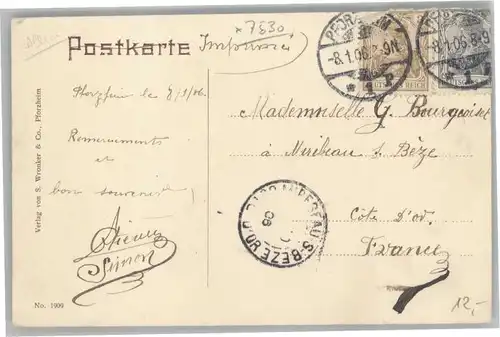 *7530
Postkarte Imprimé
PFORZHEIM
-8.1.06.8-9N
1 P
-8.1.06.8-9
1
Pforzheim le 8/1/06.
Mademoiselle G. Bourgeoise
à Mirebeau s Bèze
Remerciements
et
bon souvenir
Simon
Côte d'or.
France
MIREBEAU-S-BEZE
06
Verlag von S. Wronker & Co., Pforzheim
No. 1999
12,-